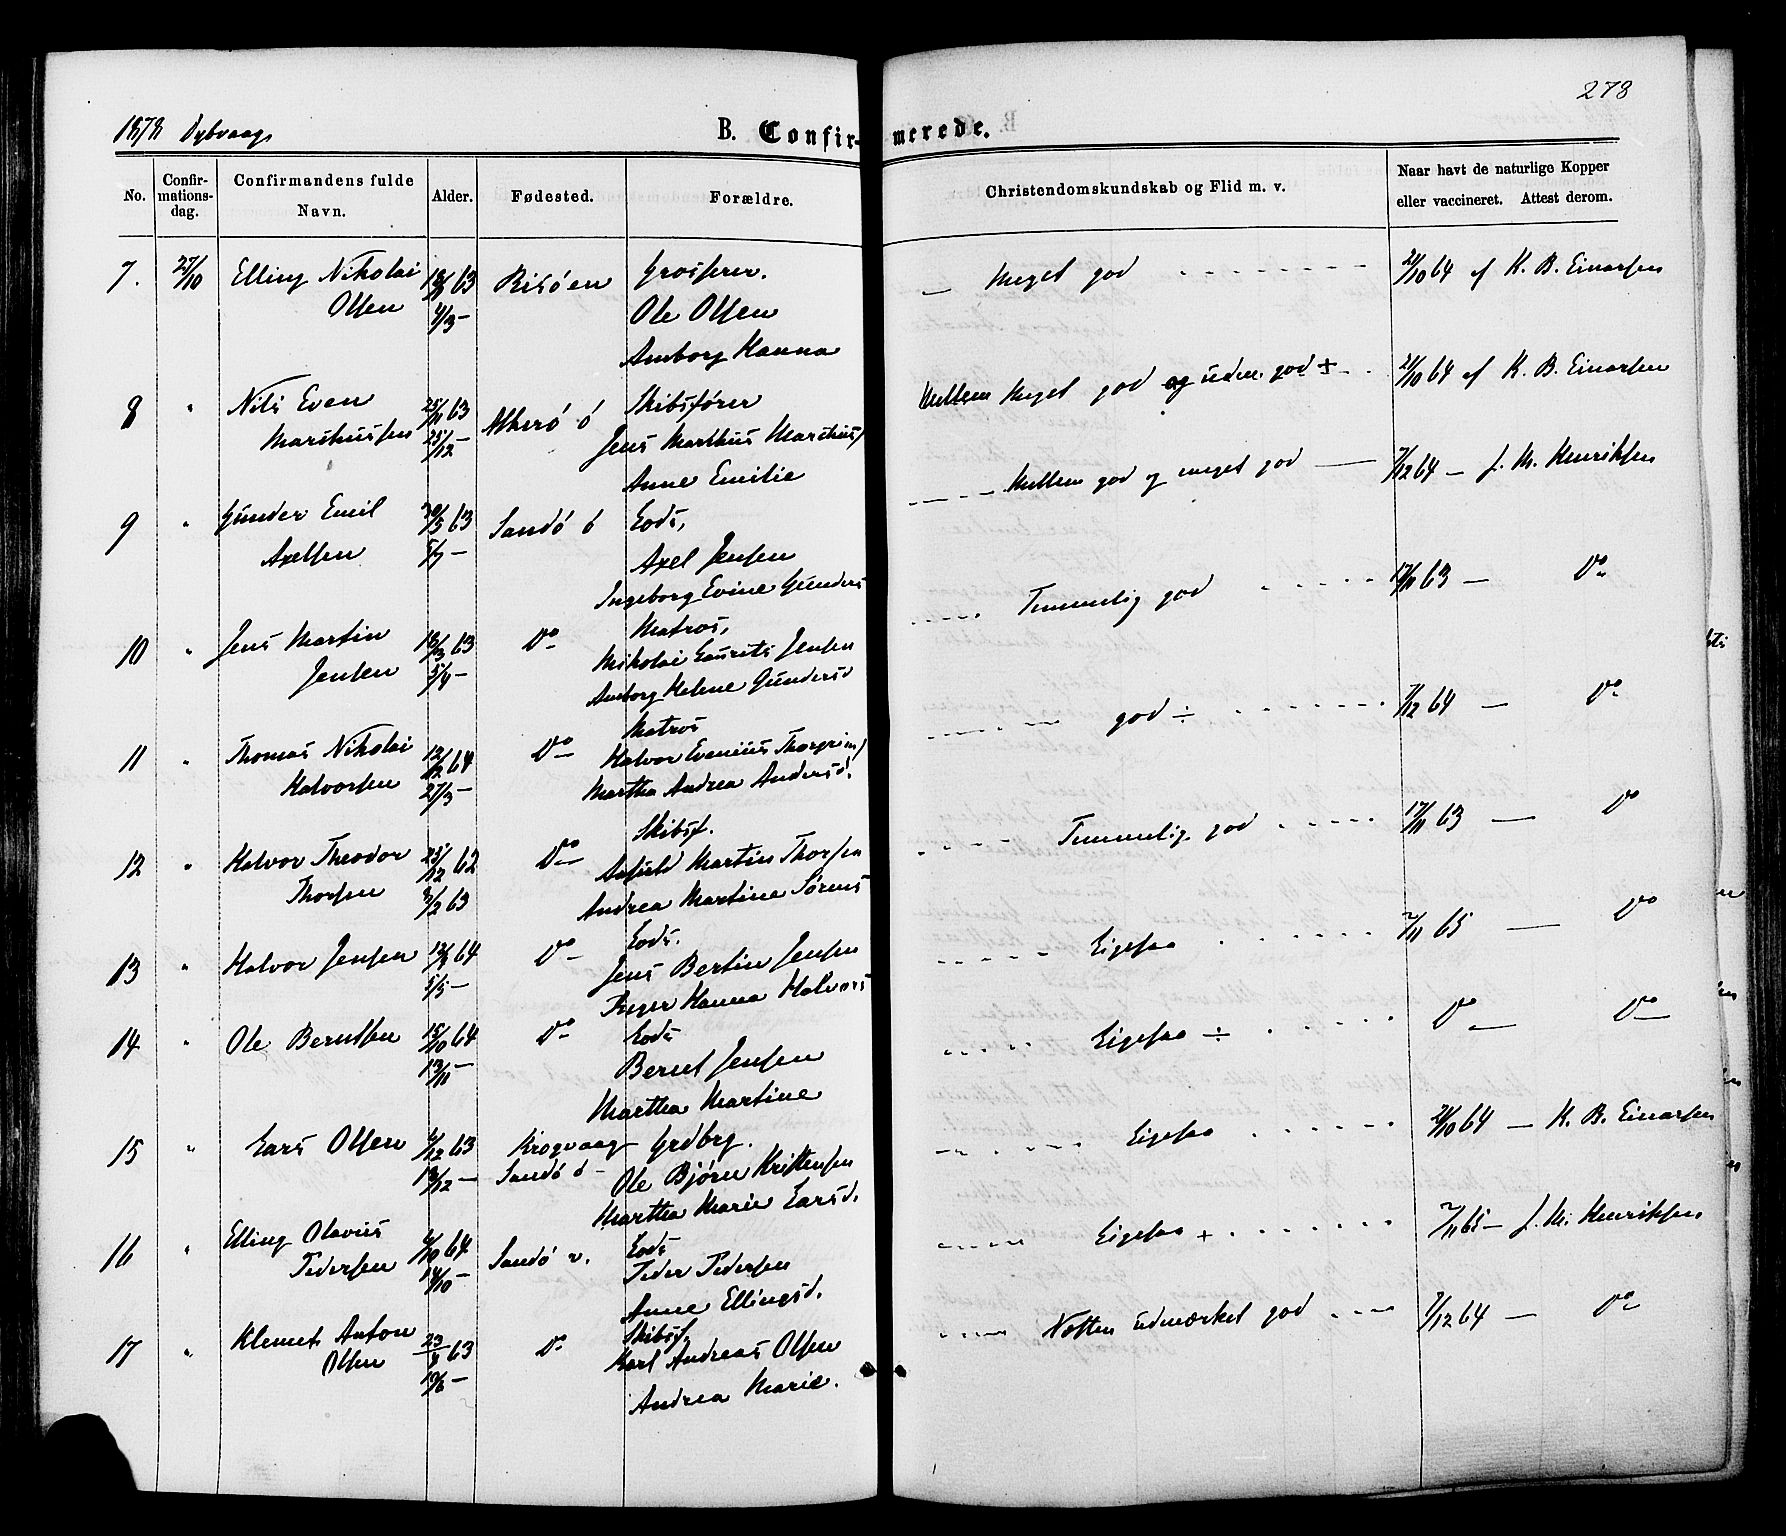 278
1878 Dybvaag
B. Confirmerede.
No. Confirmationsdag. Confirmandens fulde Navn. Alder. Fødested. Forældre. Christendomskundskab og Flid m. v. Naar havt de naturlige Kopper eller vaccineret. Attest derom.
7. 27/10 Elling Nikolai 63 Risøen Grosserer. Meget god 21/10 64 af K. B. Einarsen
Olsen 4/3 — Ole Olsen
Amborg Hanna
8 " Nils Even 25/11 63 Alherö ö Skibsfører Mellem Meget god og uden. god + 21/10 64 af K. B. Einarsen
Marthusen 25/12 — Jens Marthus
Anne Emilie
9 " Gunder Emil 63 Sandö ö Eods, Mellem god og meget god 7/12 64 — J. M. Henriksen
Axelsen 5/7 — Axel Jensen
Ingeborg Evine Gunders
10 " Jens Martin 18/3 63 Do Matros, Temmelig god 17/11 63 — Do
Jensen 5/4 — Nikolai Laurits Jensen
Amborg Helene Gundersd
11 " Thomas Nikolai 12/12 64 Do Matros god ÷ 7/12 64 — Do
Halvorsen 27/3 — Halvor Evenius Thorgrim
Martha Andrea Andersd.
12 " Halvor Theodor 25/12 62 Do Skibsf. Temmelig god 17/11 63 — Do
Thorsen 3/2 63 Martin Thorsen
Andrea Martine Sörens
13 " Halvor Jensen 12/3 64 Do Eods. Ligesaa 2/11 65 — Do
5/5 — Jens Bertin Jensen
Inger Hanna Halvors
14 " Ole Berntsen 15/10 64 Do Eods Ligesaa ÷ Do — Do
13/11 — Bernt Jensen
Martha Martine
15 " Lars Olsen 6/12 63 Krogvaag Grdbrg. Ligesaa 21/10 64 — K. B. Einarsen
13/12 — Sandö ö — Ole Bjørn Kristensen
Martha Marie Larsd.
16 " Elling Olavus 6/10 64 Sandö v. Eods Ligesaa + 2/11 65 — J. M. Henriksen
Pedersen 14/10 — Peder Pedersen
Anne Ellingsd.
17 " Klemet Anton 23/4 63 Do Skibsf, Næsten udmærket god 7/12 64 — Do
Olsen — Karl Andreas Olsen
Andrea Marie.